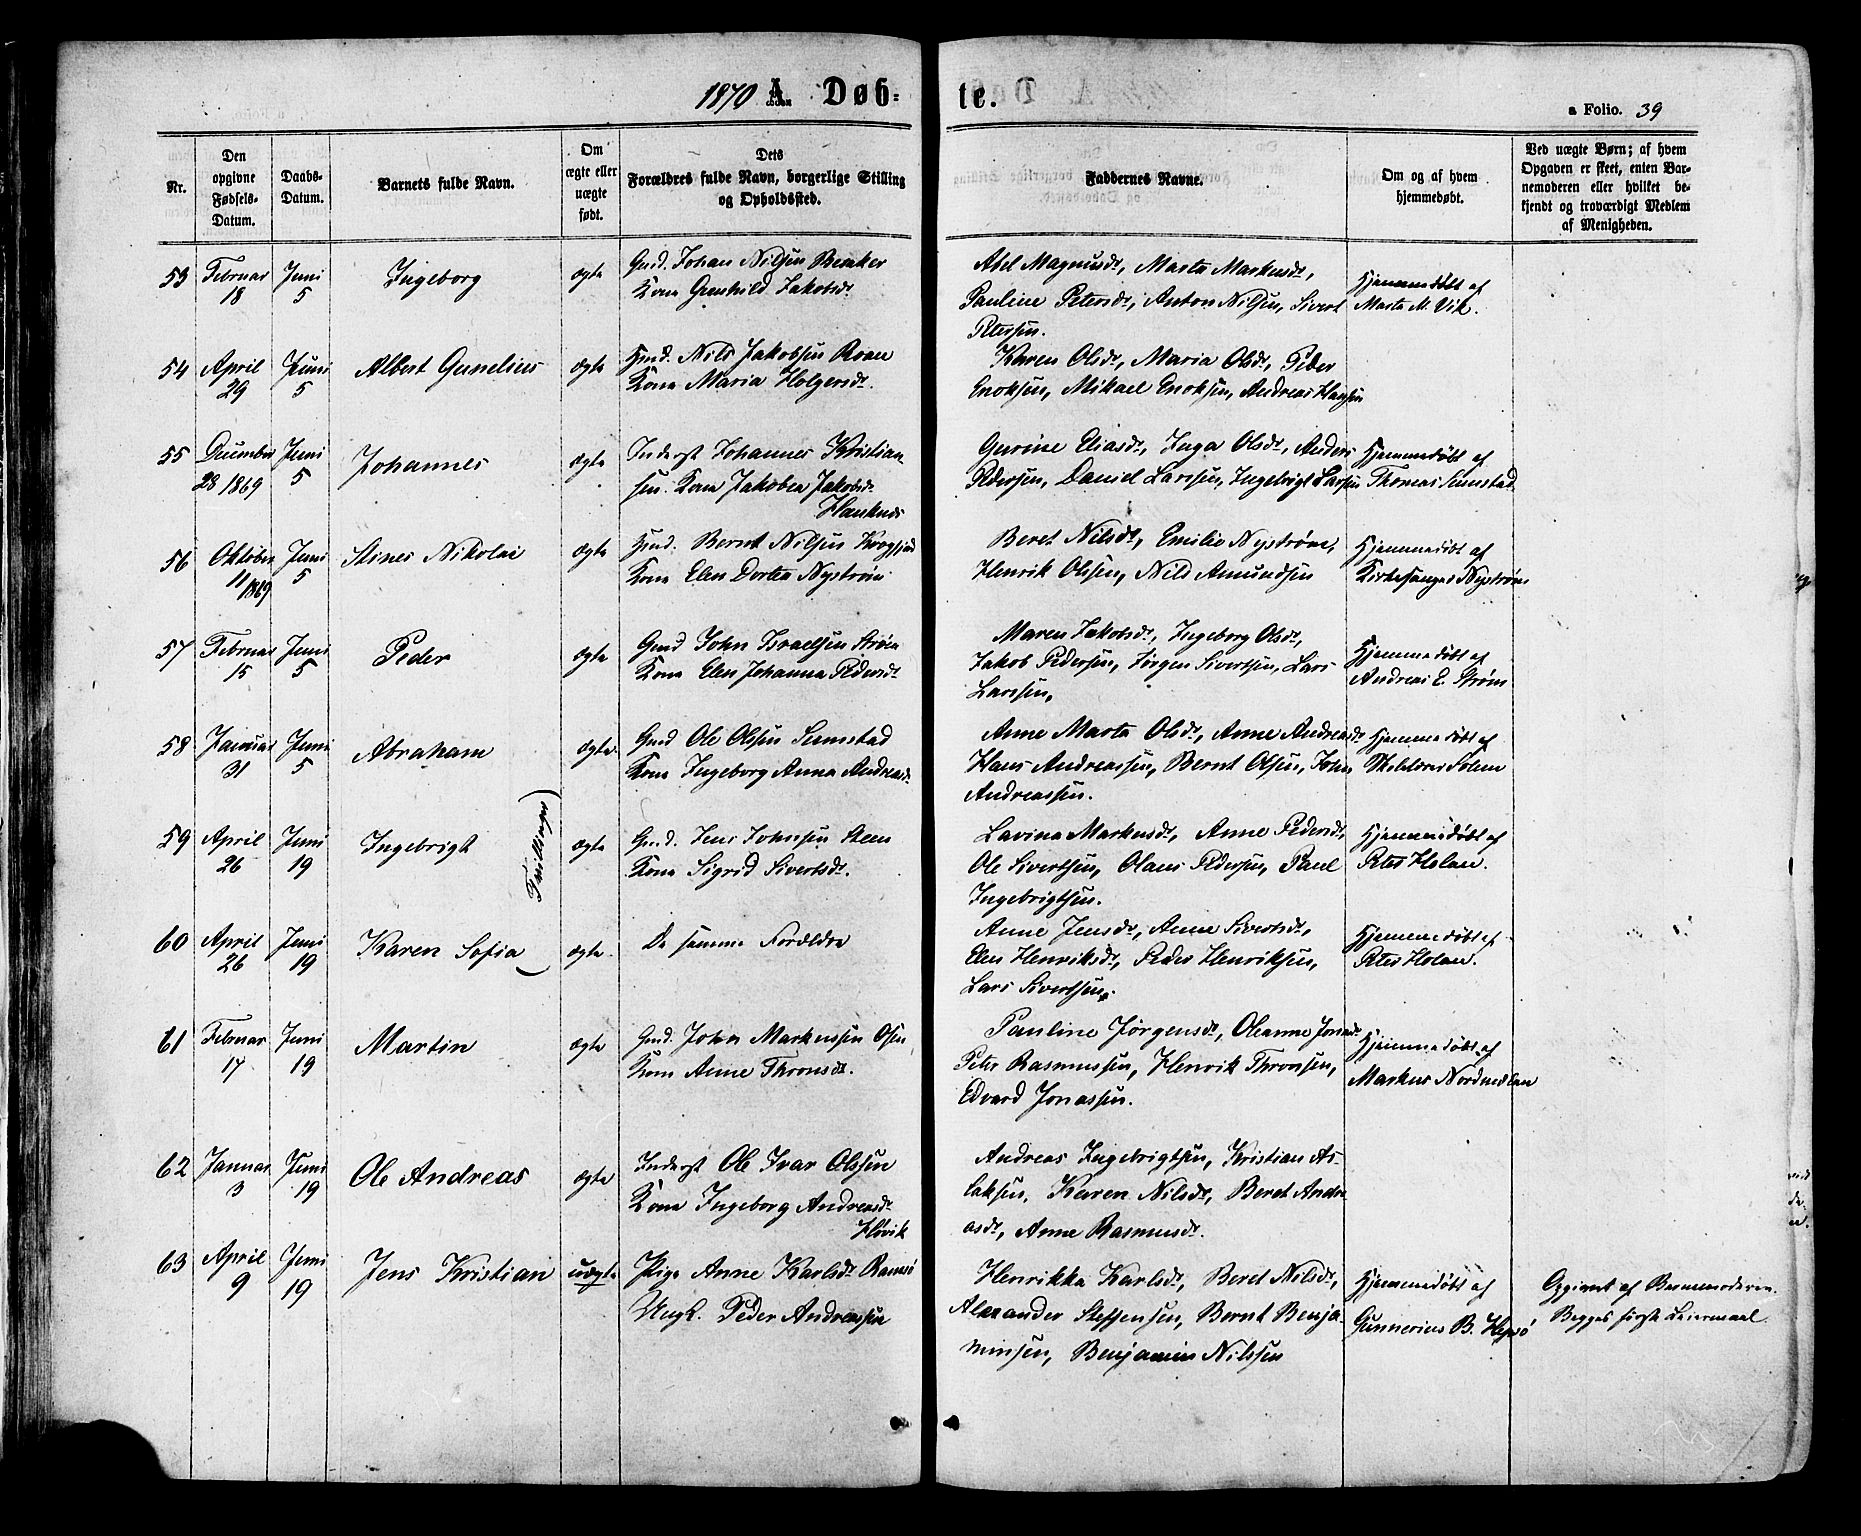 1870 A. Døb-
te.
a Folio. 39
Nr.
Den
opgivne
Fødsels-
Datum.
Daabs-
Datum.
Barnets fulde Navn.
Om
ægte eller
uægte
født.
Dets
Forældres fulde Navn, borgerlige Stilling
og Opholdssted.
Faddernes Navne.
Om og af hvem
hjemmedøbt.
Ved uægte Børn; af hvem
Opgaven er skeet, enten Bar-
nemoderen eller hvilket be-
kjendt og troværdigt Medlem
af Menigheden.
53 Februar Juni Ingeborg ægte Gmd. Johan Nilsen Besaker
18 5 Kone Gunhild Jakobsdr.
Abel Magnusdr, Marta Markusdr,
Pauline Petersdr, Anton Nilsen, Sivert
Petersen.
Hjemmedøbt af
Marta M. Vik.
54 April Juni Albert Gunelius ægte Hmd. Nils Jakobsen Roan
29 5 Kone Maria Holgersdr.
Karen Olsdr, Maria Olsdr, Peder
Enoksen, Mikael Enoksen, Andreas Hansen
55 December Juni Johannes ægte Inderst Johannes Kristian-
28 1869 5 sen. Kone Jakobea Jakobsdr
Hauknes
Gurine Eliasdr, Inga Olsdr, Anders
Pedersen, Daniel Larssen, Ingebrigt Larsen
Hjemmedøbt af
Thomas Sumstad
56 Oktober Juni Stines Nikolai ægte Hmd. Bernt Nilsen
11 1869 5 Kone Elen Dortea Nystrøm
Beret Nilsdr, Emilie Nystrøm,
Henrik Olssen, Nils Amundsen
Hjemmedøbt af
Kirkesanger Nystrøm
57 Februar Juni Peder ægte Gmd John Israelsen Strøm
15 5 Kone Elen Johanna Pedersdr
Maren Jakobsdr, Ingeborg Olsdr,
Jakob Pedersen, Jørgen Sivertsen, Lars
Larssen,
Hjemmedøbt af
Andreas E. Strøm
58 Januar Juni Abraham ægte Gmd Ole Olssen Sumstad
31 5 Kone Ingeborg Anna Andreasdr
Anne Marta Olsdr, Anne Andreasdr
Hans Andreassen, Bernt Olsen, John
Andreassen.
Hjemmedøbt af
Skolelærer Solem
59 April Juni Ingebrigt (Tvillinger) ægte Gmd. Jens Johnsen Steen
26 19 Kone Sigrid Sivertsdr.
Lavina Markusdr, Anne Pedersdr,
Ole Sivertsen, Olaus Pedersen, Paul
Ingebrigtsen.
Hjemmedøbt af
Peter Holan.
60 April Juni Karen Sofia ægte. De samme Forældre
26 19
Anne Jensdr, Anne Sivertsdr,
Elen Henriksdr, Peder Henriksen,
Lars Sivertsen.
Hjemmedøbt af
Peter Holan.
61 Februar Juni Martin ægte Gmd. John Markussen Osen
17 19 Kone Anne Thronsdr.
Pauline Jørgensdr, Oleanne Jonasdr
Peter Rasmussen, Henrik Thronsen,
Edvard Jonassen.
Hjemmedøbt af
Markus Nordmelan
62 Januar Juni Ole Andreas ægte Inderst Ole Ivar Olssen
3 19 Kone Ingeborg Andreasdr
Høvik
Andreas Ingebrigtsen, Kristian As-
laksen, Karen Nilsdr, Beret Andre
asdr, Anne Rasmusdr.
63 April Juni Jens Kristian uægte Pige Anne Karlsdr Ramsø
9 19 Ungk. Peder Andreassen
Henrikka Karlsdr, Beret Nilsdr,
Alexander Steffensen, Bernt Benja
minsen, Benjamin Nilssen
Hjemmedøbt af
Gunnerius B. Hepsø
Opgivet af Barnemoderen.
Begges første Leiermaal.